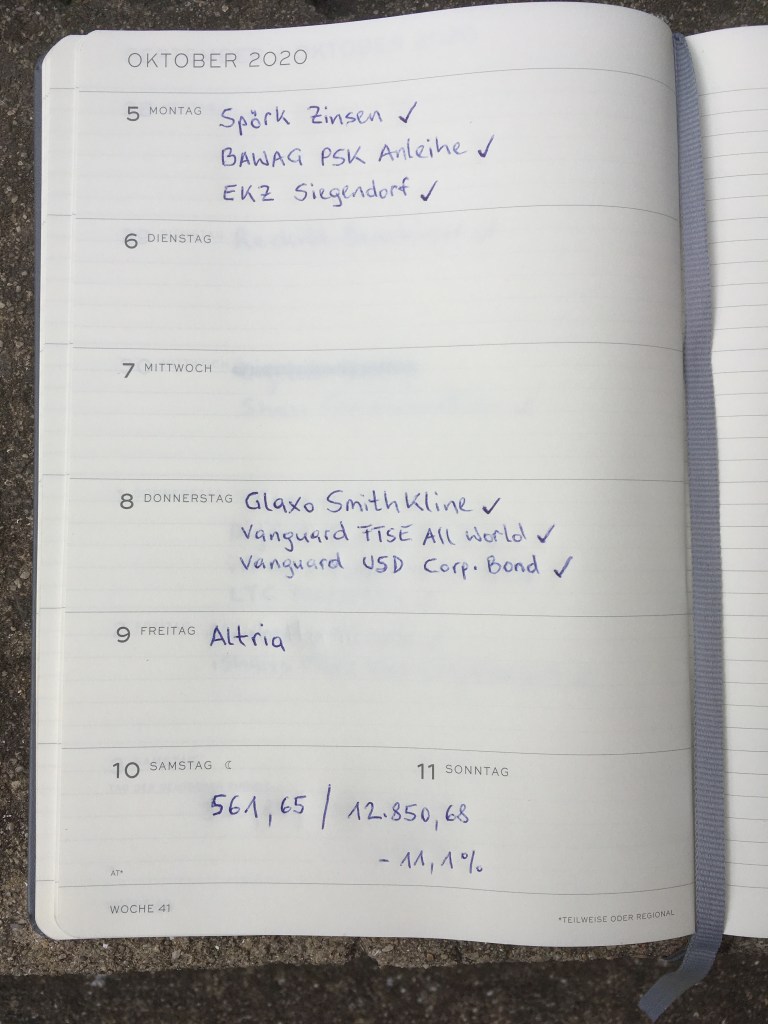 OKTOBER 2020
5 MONTAG Spörk Zinsen ✓
BAWAG PSK Anleihe ✓
EKZ Siegendorf ✓
6 DIENSTAG
7 MITTWOCH
8 DONNERSTAG Glaxo SmithKline ✓
Vanguard FTSE All World ✓
Vanguard USD Corp. Bond ✓
9 FREITAG Altria
10 SAMSTAG ☾ 11 SONNTAG
561,65 / 12.850,68
- 11,1%
AT*
WOCHE 41 *TEILWEISE ODER REGIONAL